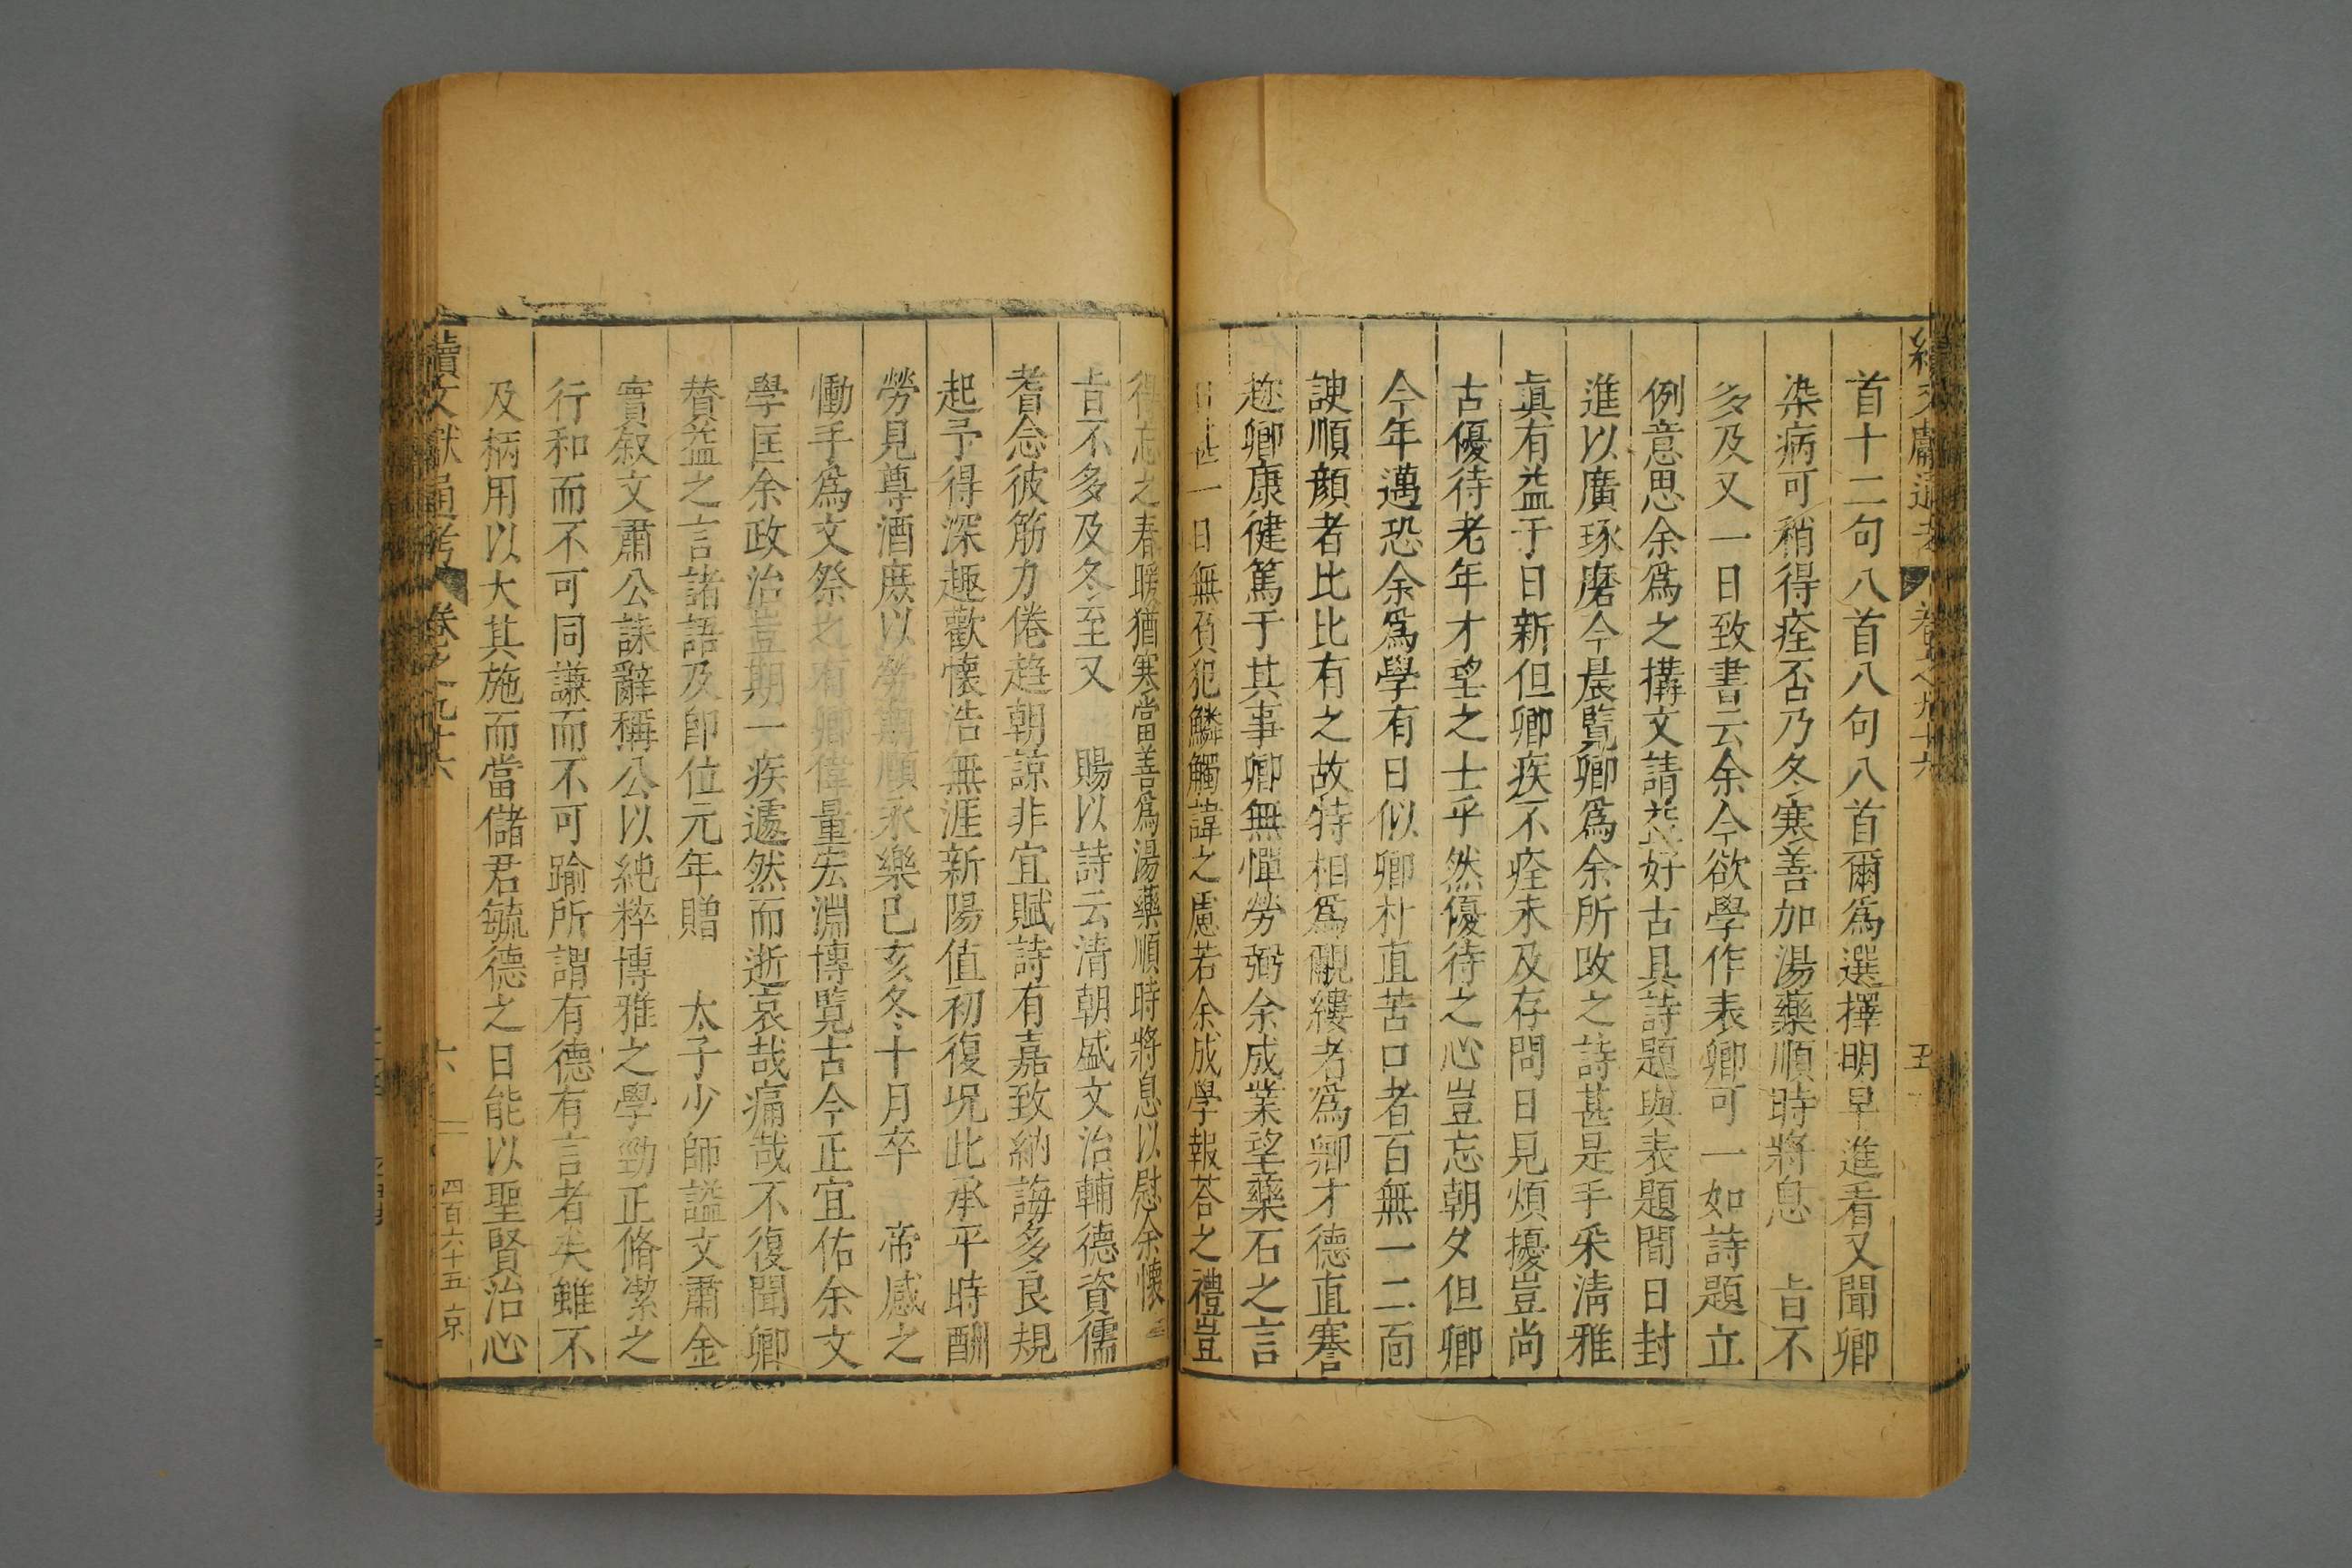 續文獻通考 卷之九十六 五
首十二句八首八句八首爾爲選擇明早進看又聞卿
染病可稍得痊否乃冬寒善加湯藥順時將息 旨不
多及又一日致書云余今欲學作表卿可一如詩題立
例意思余爲之搆文請益好古具詩題與表題間日封
進以廣琢磨今晨覽卿爲余所改之詩甚是手采淸雅
眞有益于日新但卿疾不痊未及存問日見煩擾豈尚
古優待老年才望之士乎然優待之心豈忘朝夕但卿
今年邁恐余爲學有日似卿朴直苦口者百無一二面
諛順顏者比比有之故特相爲覼縷者爲卿才德直謇
趂卿康徤篤于其事卿無憚勞弼余成業望藥石之言
日無負犯鱗觸諱之慮若余成學報荅之禮豈
得忘之春暖猶寒當善爲湯藥順時將息以慰余懷
旨不多及冬至又 賜以詩云清朝盛文治輔德資儒
耆念彼筋力倦趋朝諒非宜賦詩有嘉致納誨多良規
起予得深趣歡懷浩無涯新陽值初復況此承平時酬
勞見尊酒庶以勞期順永樂己亥冬十月卒 帝感之
慟手爲文祭之有卿偉量宏淵博覽古今正宜佑余文
學匡余政治豈期一疾遽然而逝哀哉痛哉不復聞卿
替益之言諸語及卽位元年贈 太子少師謚文肅金
實叙文肅公誄辭稱公以純粹博雅之學勁正脩潔之
行和而不可同謙而不可踰所謂有德有言者矣雖不
及柄用以大其施而當儲君毓德之日能以聖賢治心
續文獻通考 卷之九十六 六 四百六十五 京